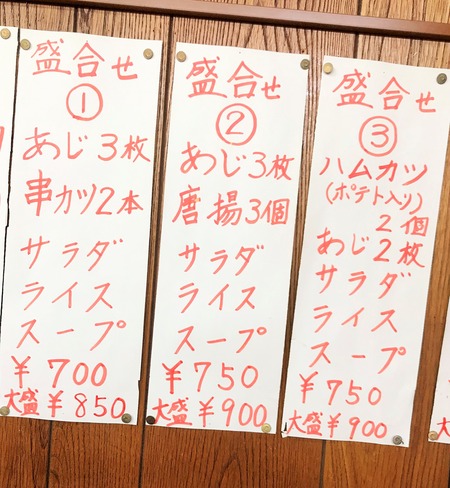 盛合せ
①
あじ3枚
串カツ2本
サラダ
ライス
スープ
¥700
大盛¥850
盛合せ
②
あじ3枚
唐揚3個
サラダ
ライス
スープ
¥750
大盛¥900
盛合せ
③
ハムカツ
(ポテト入り)
2個
あじ2枚
サラダ
ライス
スープ
¥750
大盛¥900